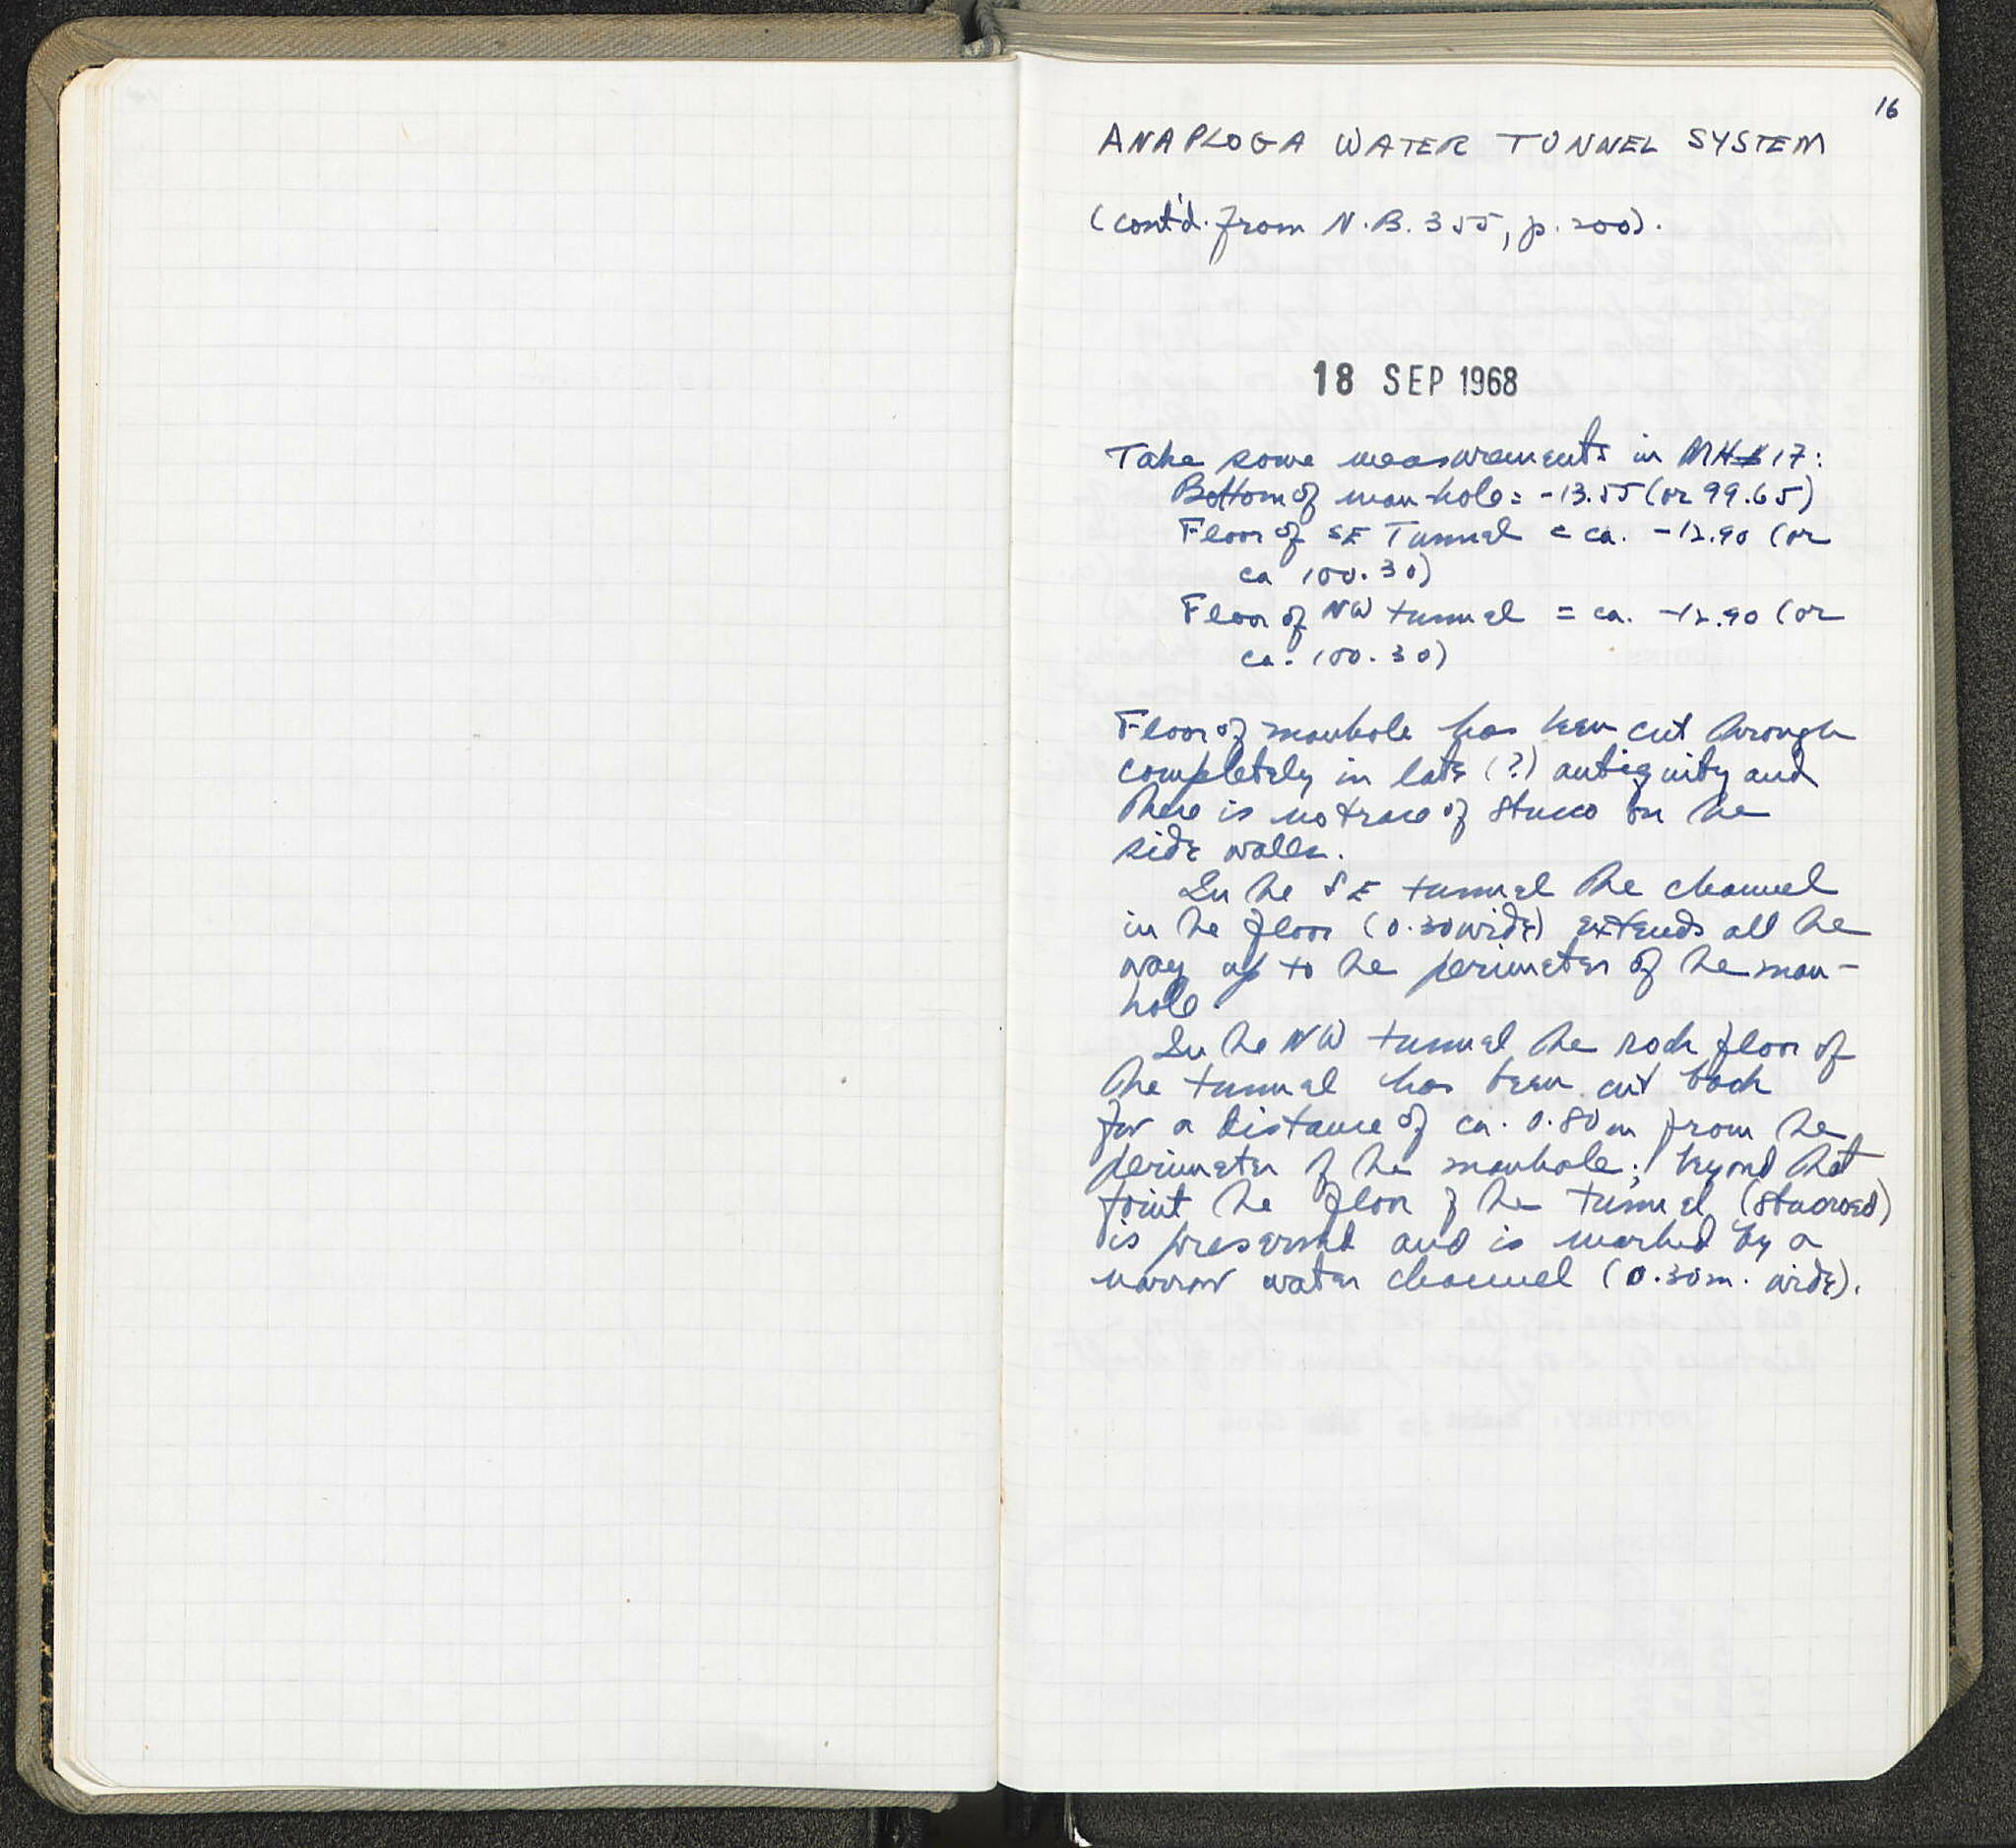 16
ANAPLOGA WATER TUNNEL SYSTEM
(cont'd. from N.B. 355, p. 200).
18 SEP 1968
Take some measurements in MH 17:
Bottom of man-hole = -13.55 (or 99.65)
Floor of SE Tunnel = ca. -12.90 (or
ca 100.30)
Floor of NW tunnel = ca. -12.90 (or
ca. 100.30)
Floor of manhole has been cut through
completely in late (?) antiquity and
there is no trace of stucco on the
side walls.
In the SE tunnel the channel
in the floor (0.30 wide) extends all the
way up to the perimeter of the man-
hole.
In the NW tunnel the rock floor of
the tunnel has been cut back
for a distance of ca. 0.80m from the
perimeter of the manhole; beyond that
point the floor of the tunnel (stuccoed)
is preserved and is marked by a
narrow water channel (0.30m. wide).